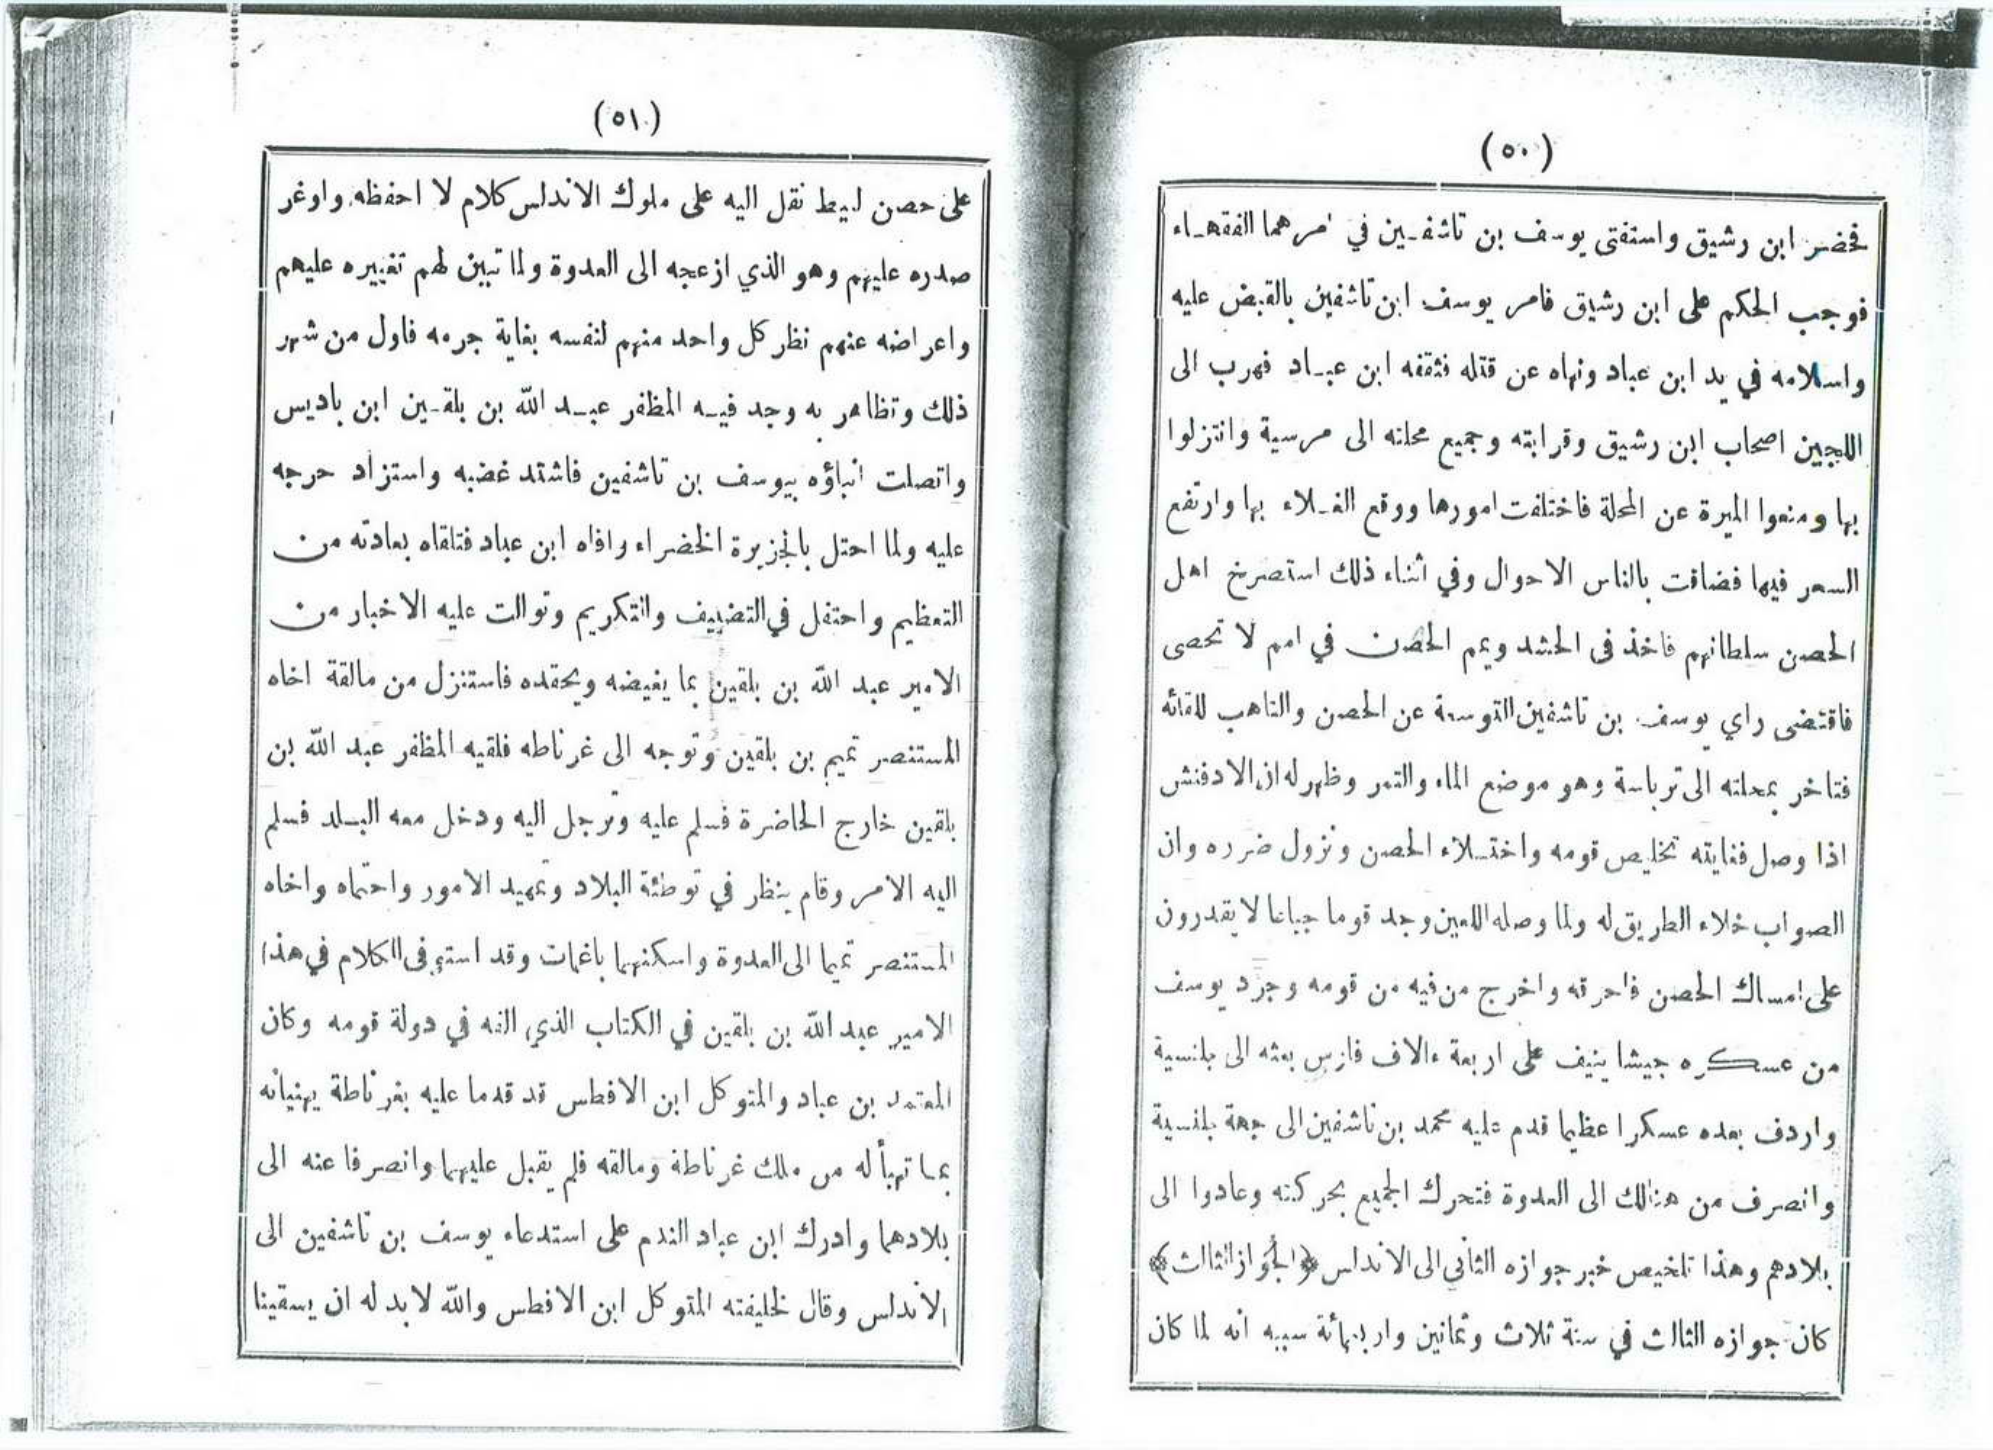 (٥٠)
فحضر ابن رشيق واستفتى يوسف بن تاشفين في امرهما الفقهاء
فوجب الحكم على ابن رشيق فامر يوسف ابن تاشفين بالقبض عليه
واسلامه في يد ابن عباد ونهاه عن قتله فثقفه ابن عباد فهرب الى
اللجين اصحاب ابن رشيق وقرابته وجميع محلته الى مرسية وانتزلوا
بها ومنعوا الميرة عن المحلة فاختلفت امورها ووقع الغلاء بها وارتفع
السعر فيها فضاقت بالناس الاحوال وفي اثناء ذلك استصرخ اهل
الحصن سلطانهم فاخذ في الحشد ويمم الحصن في امم لا تحصى
فاقتضى راي يوسف بن تاشفين التوسعة عن الحصن والتاهب للقائه
فتاخر بمحلته الى ترباسة وهو موضع الماء والتمر وظهر له ان الادفنش
اذا وصل فغايته تخليص قومه واختلاء الحصن ونزول ضرره وان
الصواب خلاء الطريق له ولما وصله اللعين وجد قوما جياعا لا يقدرون
على امساك الحصن فاحرقه واخرج من فيه من قومه وجرد يوسف
من عسكره جيشا ينيف على اربعة ءالاف فارس بعثه الى بلنسية
واردف بعده عسكرا عظيما قدم عليه محمد بن تاشفين الى جهة بلنسية
وانصرف من هنالك الى العدوة فتحرك الجميع بحركته وعادوا الى
بلادهم وهذا تلخيص خبر جوازه الثاني الى الاندلس ﴿الجواز الثالث﴾
كان جوازه الثالث في سنة ثلاث وثمانين واربعمائة سببه انه لما كان
(٥١)
على حصن لبيط نقل اليه على ملوك الاندلس كلام لا احفظه واوغر
صدره عليهم وهو الذي ازعجه الى العدوة ولما تبين لهم تغييره عليهم
واعراضه عنهم نظر كل واحد منهم لنفسه بغاية جرمه فاول من شهر
ذلك وتظاهر به وجد فيه المظفر عبد الله بن بلقين ابن باديس
واتصلت انباؤه بيوسف بن تاشفين فاشتد غضبه واستزاد حرجه
عليه ولما احتل بالجزيرة الخضراء وافاه ابن عباد فتلقاه بعادته من
التعظيم واحتفل في التضييف والتكريم وتوالت عليه الاخبار من
الامير عبد الله بن بلقين بما يغيضه ويحقده فاستنزل من مالقة اخاه
المستنصر تميم بن بلقين وتوجه الى غرناطه فلقيه المظفر عبد الله بن
بلقين خارج الحاضرة فسلم عليه وترجل اليه ودخل معه البلد فسلم
اليه الامر وقام ينظر في توطئة البلاد وتمهيد الامور واحتماه واخاه
المستنصر تميما الى العدوة واسكنهما باغمات وقد استوفى الكلام في هذا
الامير عبد الله بن بلقين في الكتاب الذي الفه في دولة قومه وكان
المعتمد بن عباد والمتوكل ابن الافطس قد قدما عليه بغرناطة يهنيانه
بما تهيأ له من ملك غرناطة ومالقه فلم يقبل عليهما وانصرفا عنه الى
بلادهما وادرك ابن عباد الندم على استدعاء يوسف بن تاشفين الى
الاندلس وقال لخليفته المتوكل ابن الافطس والله لا بد له ان يسقينا